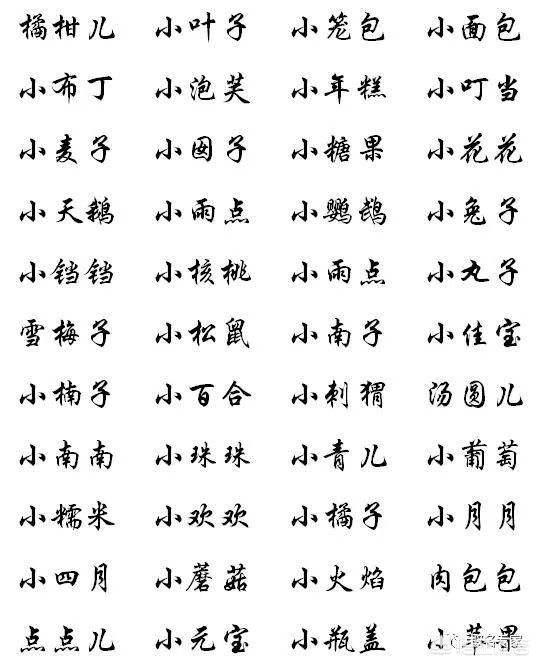 橘柑儿 小叶子 小笼包 小面包
小布丁 小泡芙 小年糕 小叮当
小麦子 小囡子 小糖果 小花花
小天鹅 小雨点 小鹦鹉 小兔子
小铛铛 小核桃 小雨点 小丸子
雪梅子 小松鼠 小南子 小佳宝
小楠子 小百合 小刺猬 汤圆儿
小南南 小珠珠 小青儿 小葡萄
小糯米 小欢欢 小橘子 小月月
小四月 小蘑菇 小火焰 肉包包
点点儿 小元宝 小瓶盖 小苹果